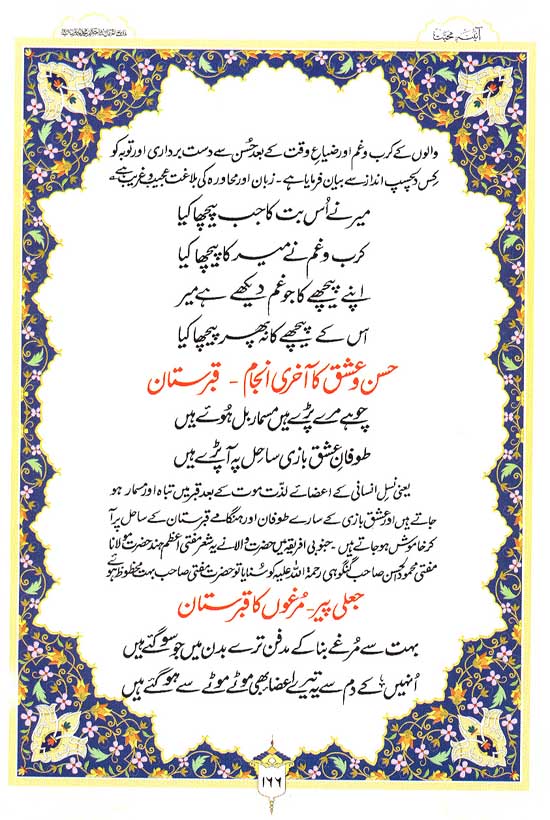 آئینہ محبت
والوں کے کرب و غم اور ضیاعِ وقت کے بعد حُسن سے دست برداری اور توبہ کو
کِس دلچسپ انداز سے بیان فرمایا ہے۔ زبان اور محاورہ کی بلاغت عجیب و غریب ہے
میر نے اُس بت کا جب پیچھا کیا
کرب و غم نے میر کا پیچھا کیا
اپنے پیچھے کا جو غم دیکھے ہے میر
اس کے پیچھے کا نہ پھر پیچھا کیا
حسن و عشق کا آخری انجام - قبرستان
چوہے مرے پڑے ہیں مسمار بل ہوئے ہیں
طوفانِ عشق بازی ساحل پہ آ پڑے ہیں
یعنی نسلِ انسانی کے اعضائے لذّت موت کے بعد قبر میں تباہ اور مسمار ہو
جاتے ہیں اور عشق بازی کے سارے طوفان اور ہنگامے قبرستان کے ساحل پر آ
کر خاموش ہو جاتے ہیں۔ جنوبی افریقہ میں حضرت والا نے یہ شعر مفتی اعظم ہند حضرت مولانا
مفتی محمود الحسن صاحب گنگوہی رحمۃ اللہ علیہ کو سُنایا تو حضرت مفتی صاحب بہت محظوظ ہوئے
جعلی پیر - مُرغوں کا قبرستان
بہت سے مُرغے بنا کے مدفن ترے بدن میں جو سو گئے ہیں
اُنہیں کے دم سے یہ تیرے اعضا بھی موٹے موٹے سے ہو گئے ہیں
۱۶۶